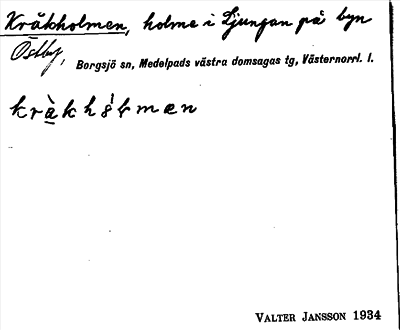 Kråkholmen, holme i Ljungan på byn
Östby, Borgsjö sn, Medelpads västra domsagas tg, Västernorrl. l.
kràkhȯ́łmæn
VALTER JANSSON 1934